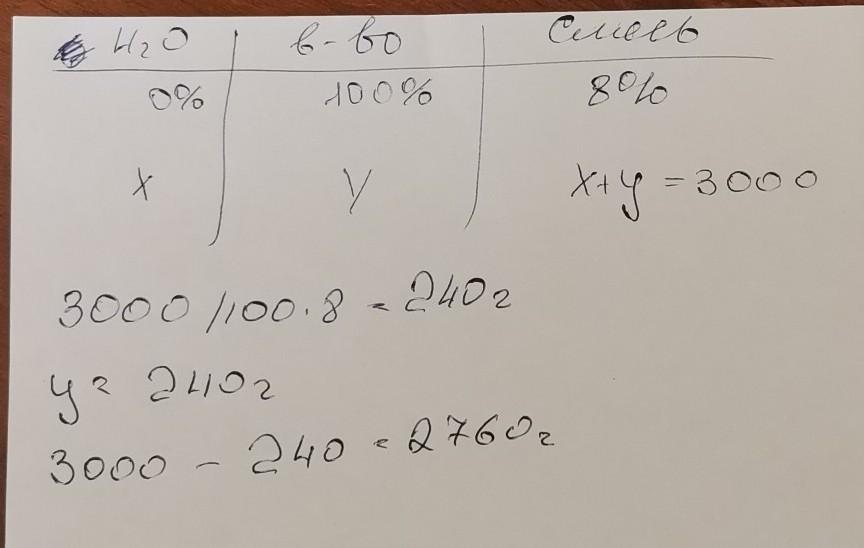 H₂O в-во Смесь
0% 100% 8%
x y x+y = 3000
3000/100·8 = 240г
y = 240г
3000 - 240 = 2760г